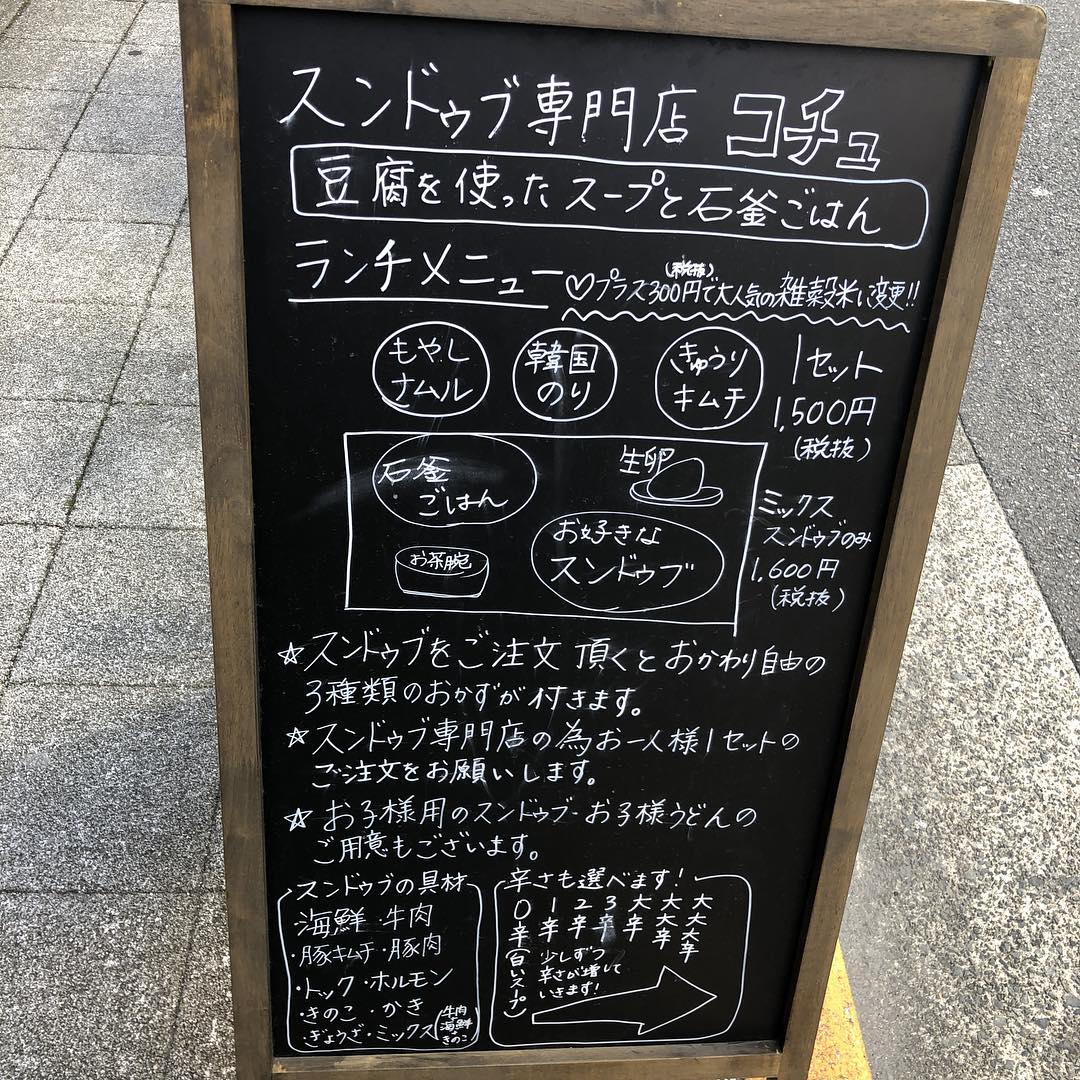 スンドゥブ専門店 コチュ
豆腐を使ったスープと石釜ごはん
ランチメニュー
(税抜)
♡プラス300円で大人気の雑穀米に変更!!
もやし
ナムル
韓国
のり
きゅうり
キムチ
1セット
1,500円
(税抜)
石釜
ごはん
生卵
お茶腕
お好きな
スンドゥブ
ミックス
スンドゥブのみ
1,600円
(税抜)
☆スンドゥブをご注文頂くとおかわり自由の
3種類のおかずが付きます。
☆スンドゥブ専門店の為お一人様1セットの
ご注文をお願いします。
☆お子様用のスンドゥブ・お子様うどんの
ご用意もございます。
スンドゥブの具材
海鮮・牛肉
・豚キムチ・豚肉
・トック・ホルモン
・きのこ・かき
・ぎょうざ・ミックス
牛肉
+
海鮮
+
きのこ
辛さも選べます!
0辛(白いスープ)
1辛
2辛
3辛
大辛
大大辛
大大大辛
少しずつ
辛さが増して
いきます!